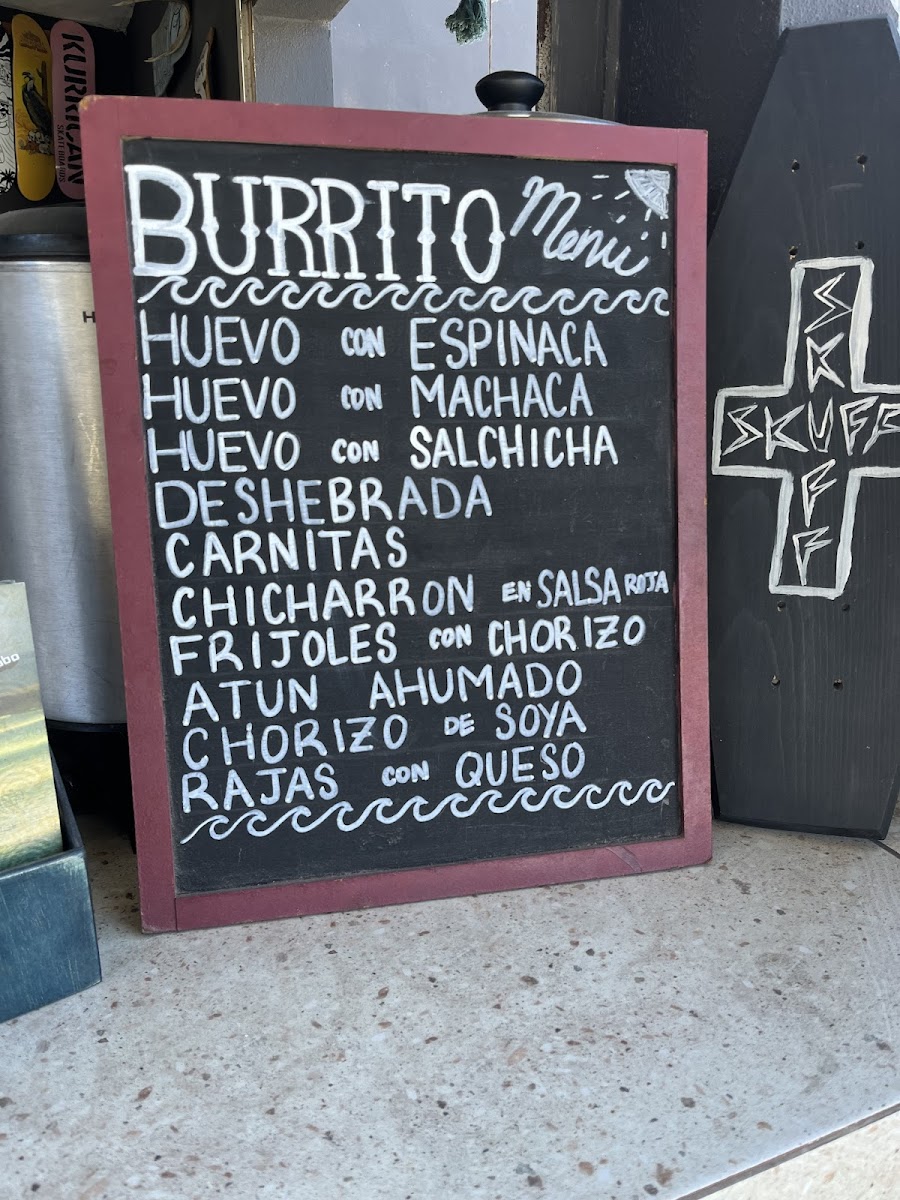 KURRICAN
SKATEBOARDS
BURRITO Menú
HUEVO CON ESPINACA
HUEVO CON MACHACA
HUEVO CON SALCHICHA
DESHEBRADA
CARNITAS
CHICHARRON EN SALSA ROJA
FRIJOLES CON CHORIZO
ATUN AHUMADO
CHORIZO DE SOYA
RAJAS CON QUESO
SKUFF
SKUFF